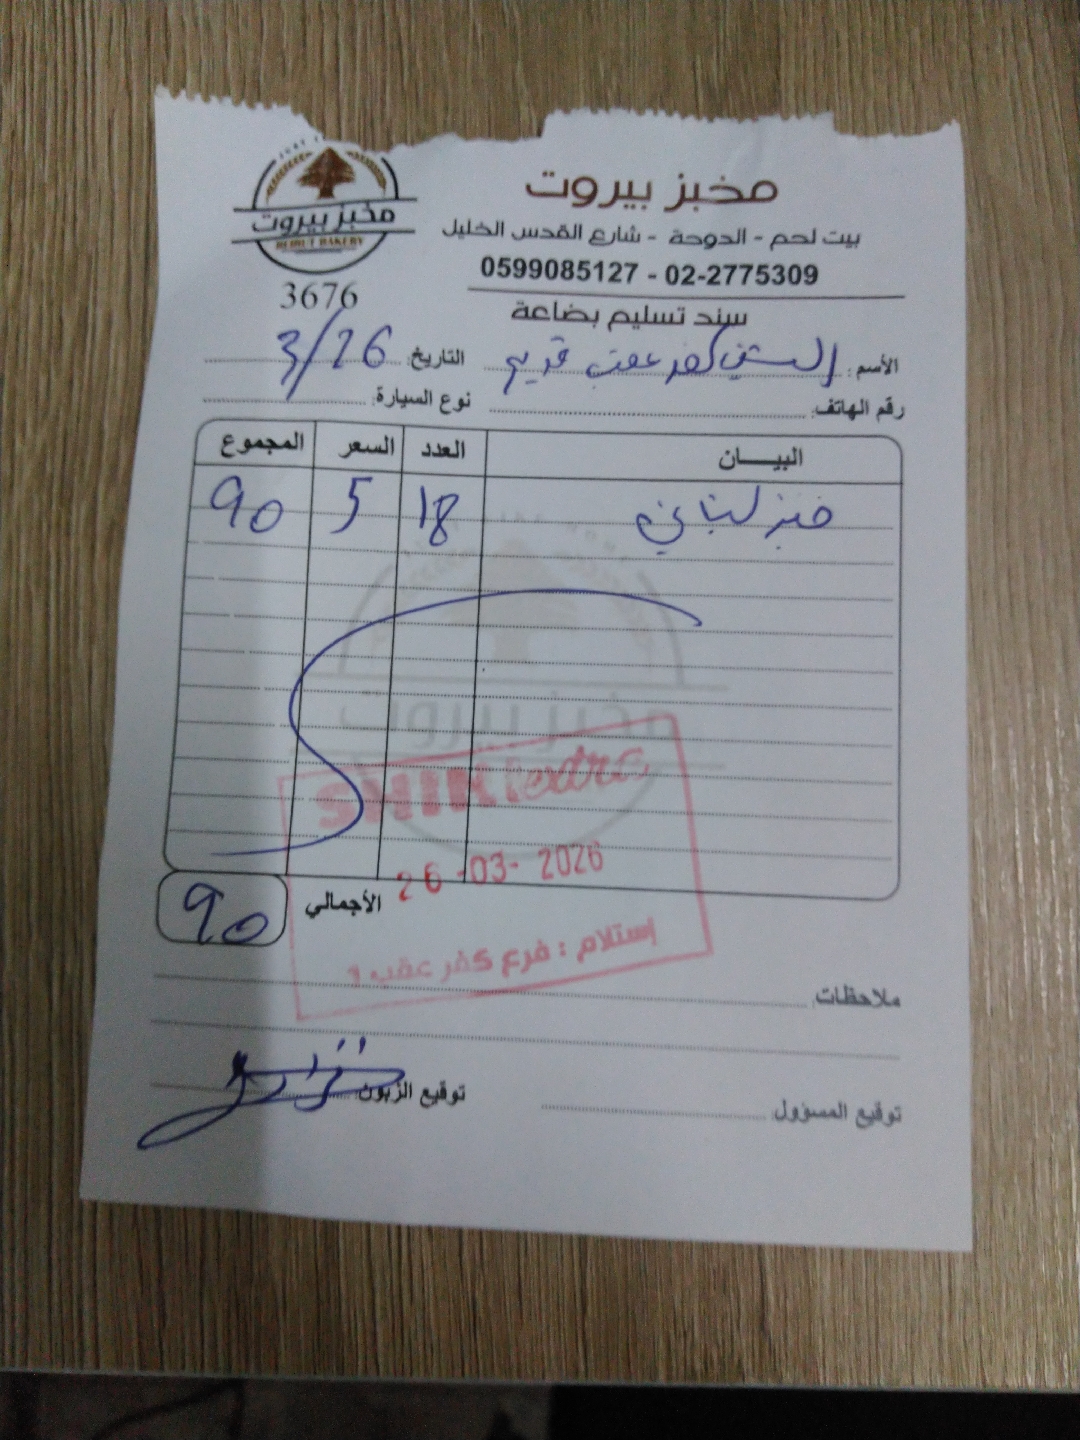 مخبز بيروت
BEIRUT BAKERY
مخبز بيروت
بيت لحم - الدوحة - شارع القدس الخليل
0599085127 - 02-2775309
3676
سند تسليم بضاعة
الأسم: كفر عقب قديم
التاريخ: 3/26
رقم الهاتف:
نوع السيارة:
البيـــان العدد السعر المجموع
خبز لبناني 18 5 90
مخبز بيروت
SHINI extra
26-03-2026
الأجمالي 90
إستلام : فرع كفر عقب 1
ملاحظات
توقيع المسؤول
توقيع الزبون